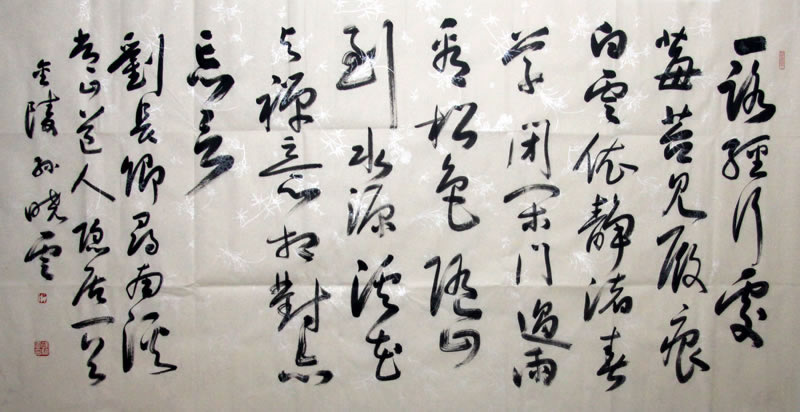 一路經行處
莓苔見履痕
白雲依静渚春
草閉閑門過雨
看松色隨山
到水源溪花
与禪意相對亦
忘言
劉長卿尋南溪
常山道人隱居一首
金陵孫曉雲